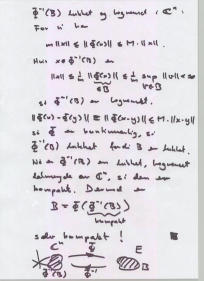 Φ⁻¹(B) lukket og begrænset i ℂⁿ.
For vi har
m‖x‖ ≤ ‖Φ(x)‖ ≤ M·‖x‖.
Hvis x∈Φ⁻¹(B) er
‖x‖ ≤ 1/m ‖Φ(x)‖ ≤ 1/m sup ‖v‖ < ∞
∈B v∈B
så Φ⁻¹(B) er begrænset.
‖Φ(x)-Φ(y)‖ = ‖Φ(x-y)‖ ≤ M·‖x-y‖
så Φ er kontinuerlig, så
Φ⁻¹(B) lukket fordi B er lukket.
Nu er Φ⁻¹(B) en lukket, begrænset
delmængde af ℂⁿ, så den er
kompakt. Dermed er
B = Φ(Φ⁻¹(B))
kompakt
selv kompakt!
ℂⁿ Φ E
Φ⁻¹ B
Φ⁻¹(B)